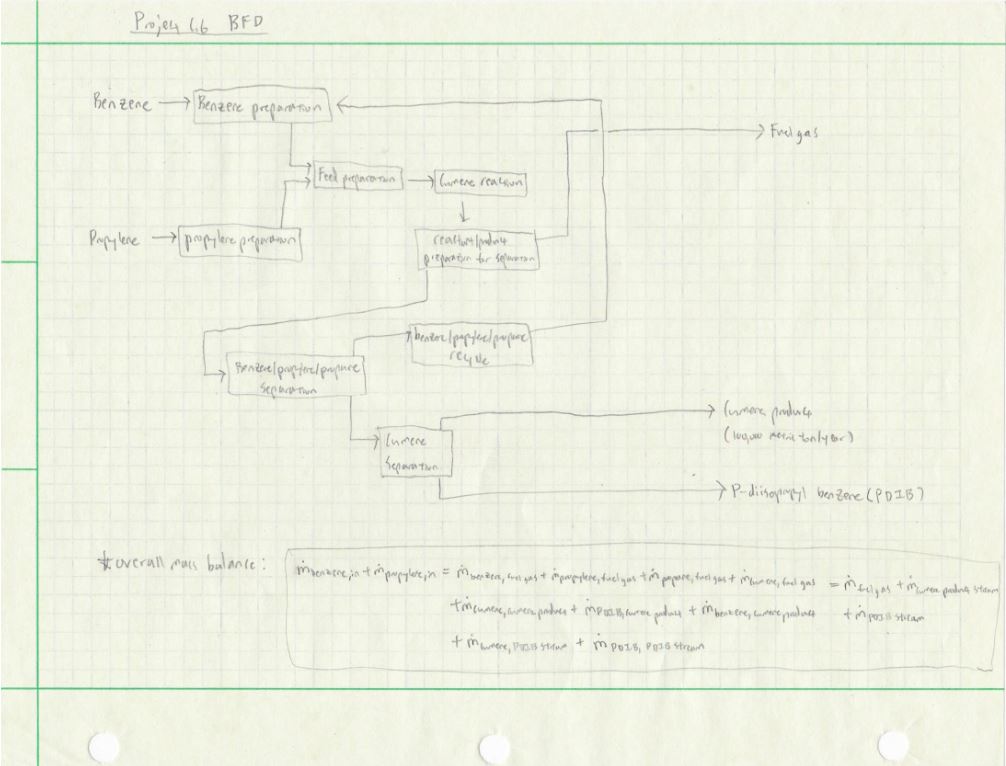 Project 4.6 BFD
Benzene
Benzene preparation
Fuel gas
Feed preparation
Cumene reaction
Propylene
propylene preparation
reactant/product
preparation for separation
benzene/propylene/propane
recycle
Benzene/propylene/propane
Separation
Cumene product
(100,000 metric ton/year)
Cumene
Separation
P-diisopropyl benzene (PDIB)
* overall mass balance:
ṁbenzene,in + ṁpropylene,in = ṁbenzene,fuel gas + ṁpropylene,fuel gas + ṁpropane,fuel gas + ṁcumene,fuel gas = ṁfuel gas + ṁcumene product stream
+ ṁcumene,cumene product + ṁPDIB,cumene product + ṁbenzene,cumene product + ṁPDIB stream
+ ṁcumene,PDIB stream + ṁPDIB,PDIB stream